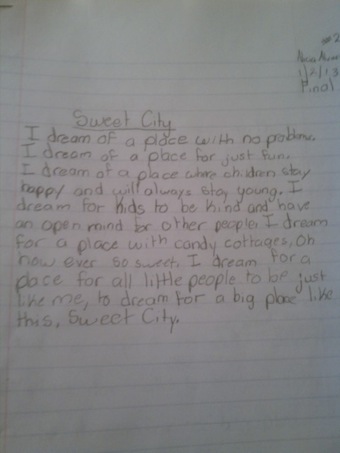 #2
1/2/13
Final
Sweet City
I dream of a place with no problems.
I dream of a place for just fun.
I dream of a place where children stay
happy and will always stay young. I
dream for kids to be kind and have
an open mind for other people. I dream
for a place with candy cottages, Oh
how ever so sweet. I dream for a
place for all little people to be just
like me, to dream for a big place like
this, Sweet City.